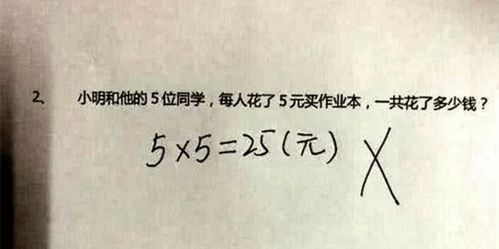 2、 小明和他的5位同学，每人花了5元买作业本，一共花了多少钱？
5×5=25(元) ✗